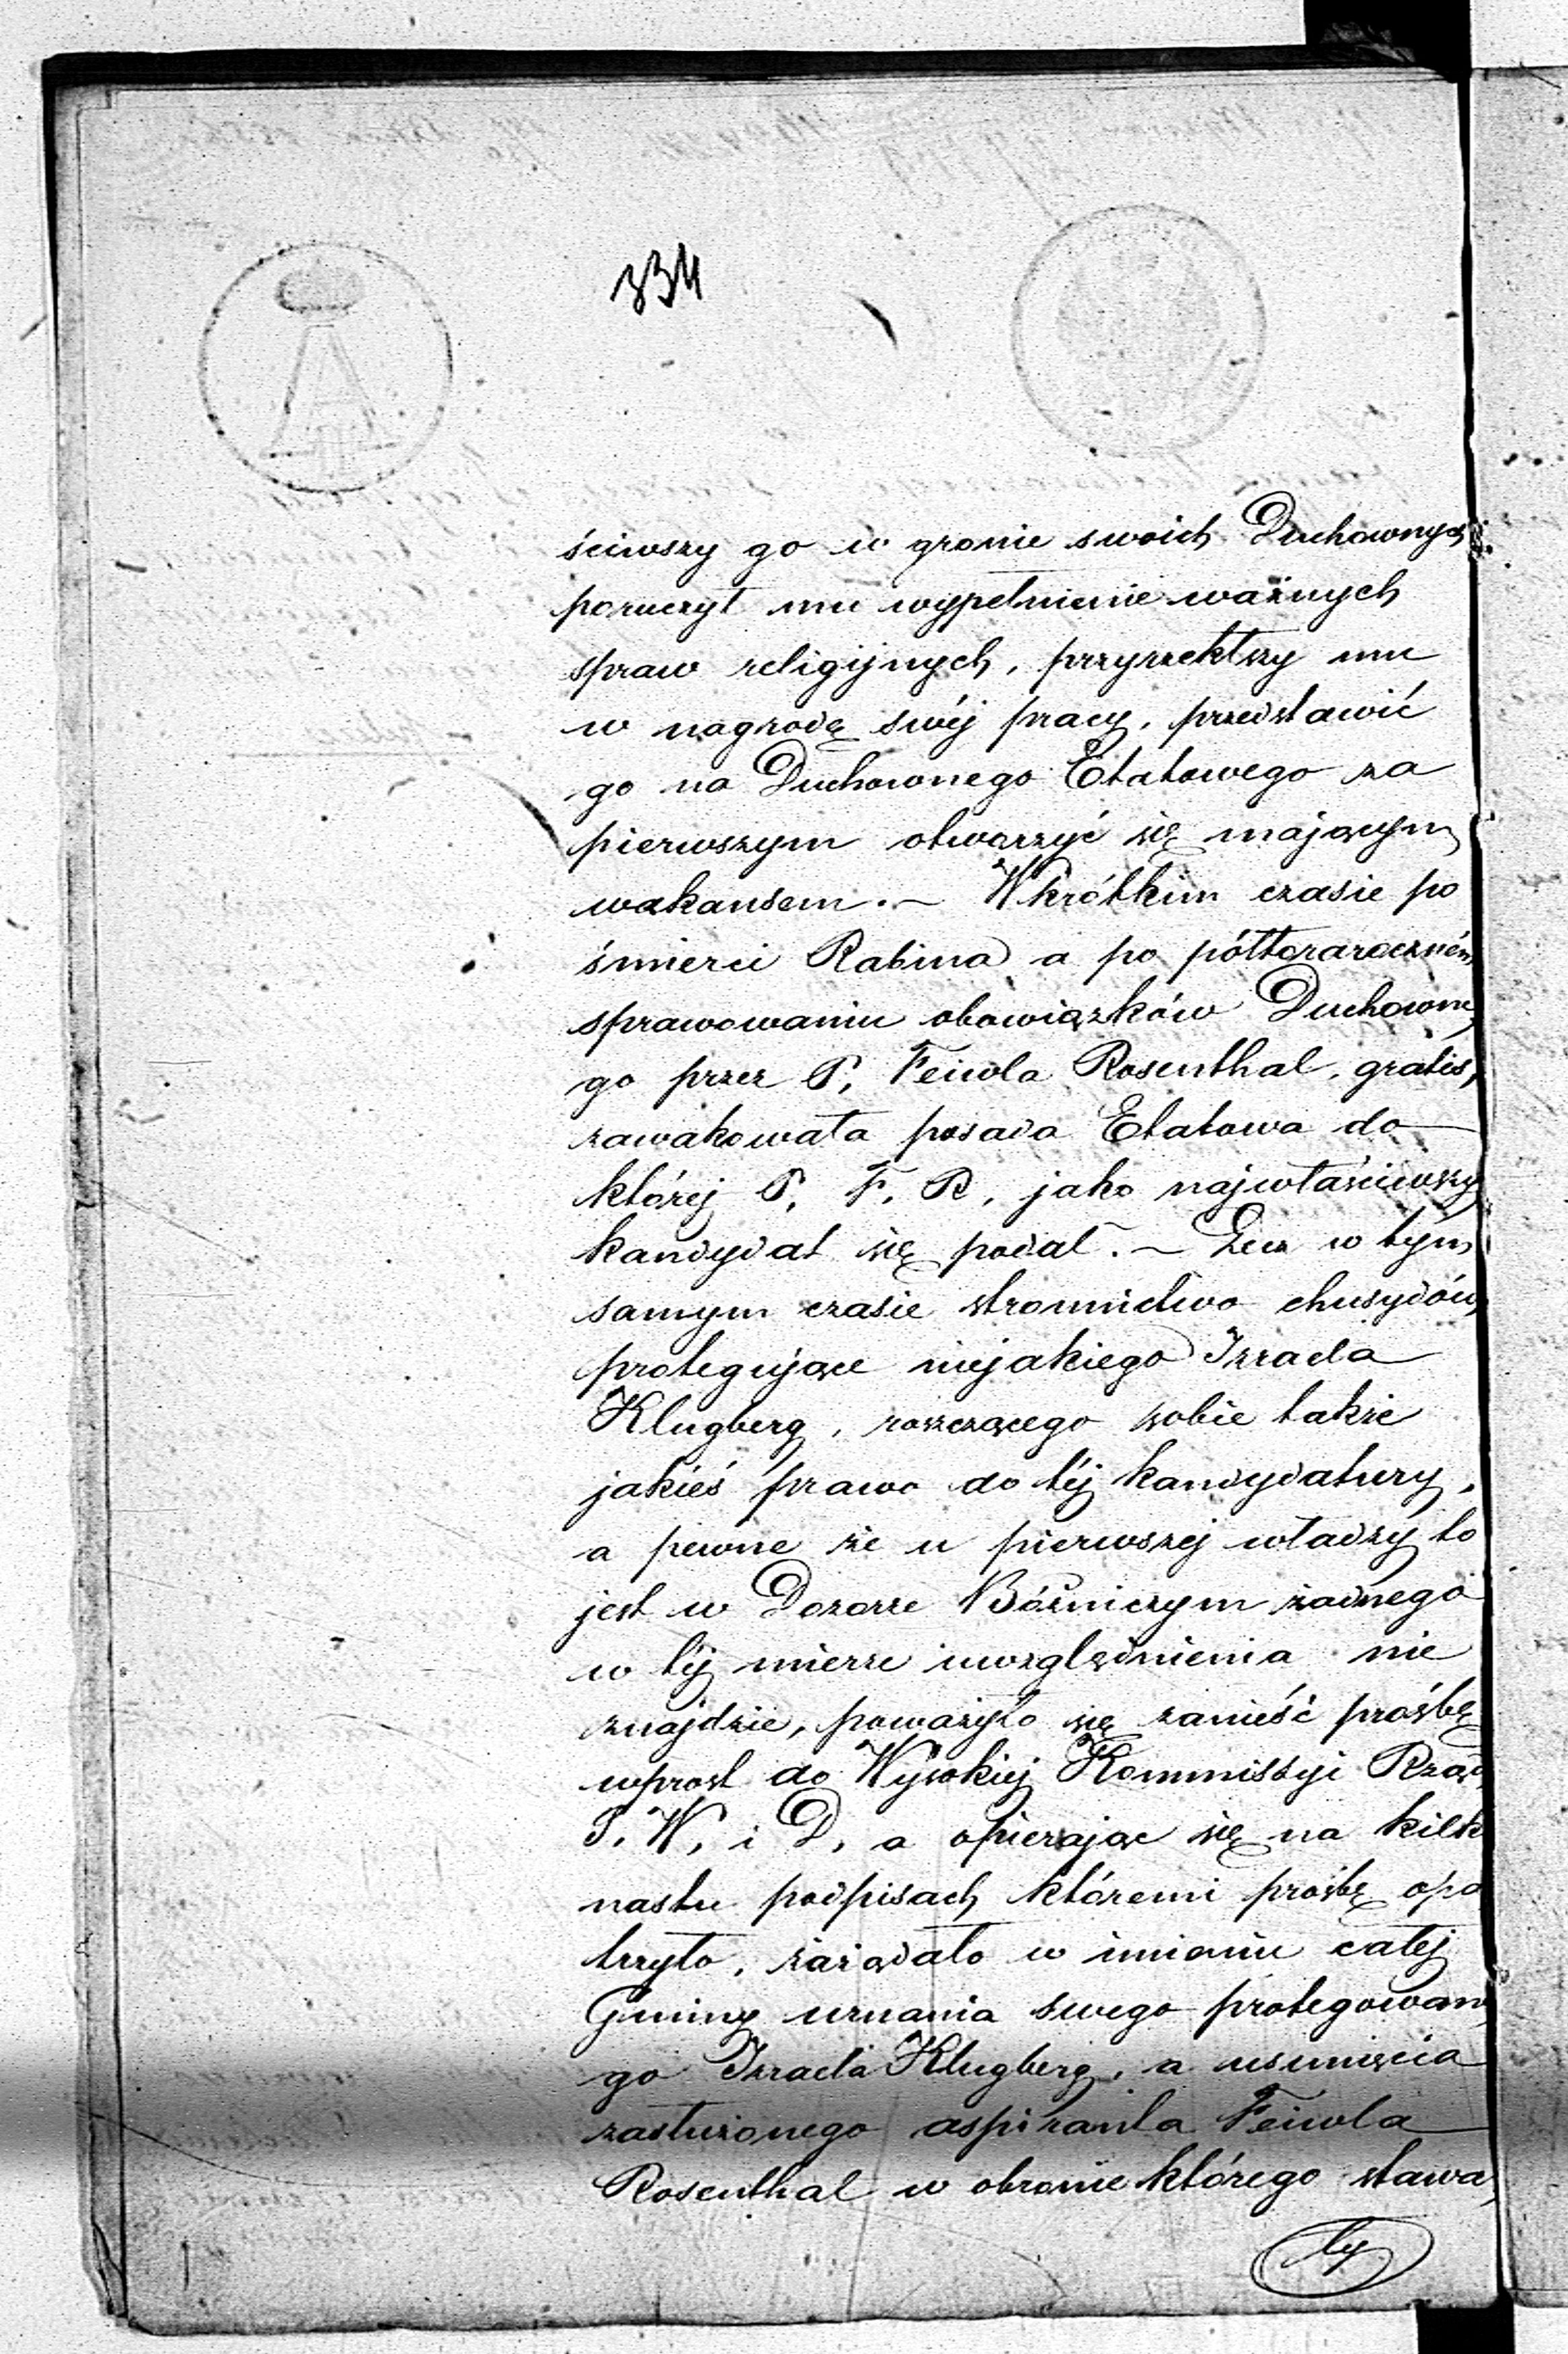 334
ściwszy go w gronie swoich Duchownych
poruczył mu wypełnienie ważnych
spraw religijnych, przyrzekłszy mu
w nagrodę swéj pracy, przedstawić
go na Duchownego Etatowego za
pierwszym otworzyć się mającym
wakansem. — W krótkim czasie po
śmierci Rabina a po półtorarocznem
sprawowaniu obowiązków Duchowne
go przez P. Feiwla Rosenthal, gratis,
zawakowała posada Etatowa do
której P. F. R. jako najwłaściwszy
kandydat się podał. — Lecz w tym
samym czasie stronnictwo chusydów,
protegujące niejakiego Izraela
Klugberg, roszczącego sobie także
jakieś prawo do téj kandydatury,
a pewne że u pierwszej władzy to
jest w Dozorze Bóżniczym żadnego
w téj mierze uwzględnienia nie
znajdzie, poważyło się zanieść prośbę
wprost do Wysokiej Kommissyi Rząd
S. W. i D. a opierając się na kilk
nastu podpisach któremi prośbę opa
trzyło, zażądało w imieniu całej
Gminy uznania swego protegowane
go Izraela Klugberg, a usunięcia
zasłużonego aspiranta Feiwla
Rosenthal w obronie którego stawa
ły